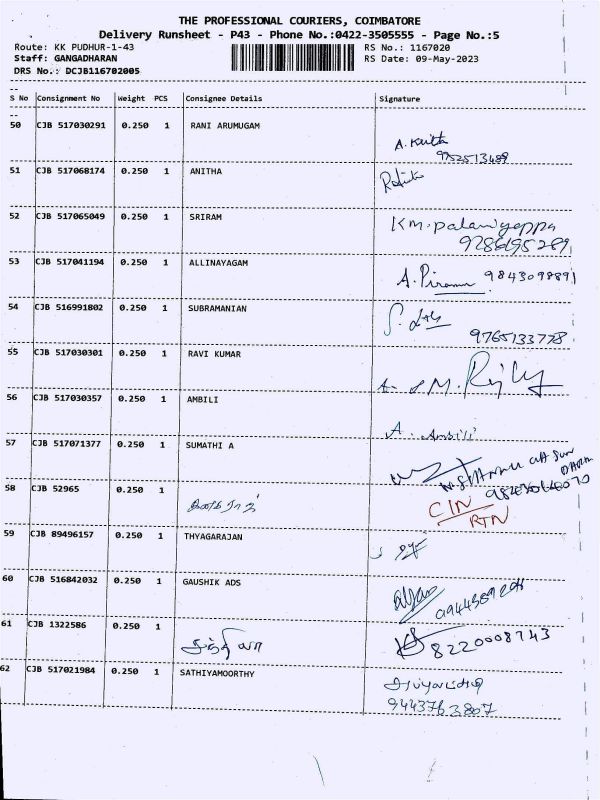 THE PROFESSIONAL COURIERS, COIMBATORE
Delivery Runsheet - P43 - Phone No.:0422-3505555 - Page No.:5
Route: KK PUDHUR-1-43 RS No.: 1167020
Staff: GANGADHARAN RS Date: 09-May-2023
DRS No.: DCJB116702005
S No Consignment No Weight PCS Consignee Details Signature
50 CJB 517030291 0.250 1 RANI ARUMUGAM
51 CJB 517068174 0.250 1 ANITHA
52 CJB 517065049 0.250 1 SRIRAM KM.palaniyappa
53 CJB 517041194 0.250 1 ALLINAYAGAM 9843098891
54 CJB 516991802 0.250 1 SUBRAMANIAN
9765133778
55 CJB 517030301 0.250 1 RAVI KUMAR
56 CJB 517030357 0.250 1 AMBILI
A. Ambili
57 CJB 517071377 0.250 1 SUMATHI A
58 CJB 52965 0.250 1 CIN
RTN
59 CJB 89496157 0.250 1 THYAGARAJAN
60 CJB 516842032 0.250 1 GAUSHIK ADS
61 CJB 1322586 0.250 1
8220008743
62 CJB 517021984 0.250 1 SATHIYAMOORTHY
9443763807